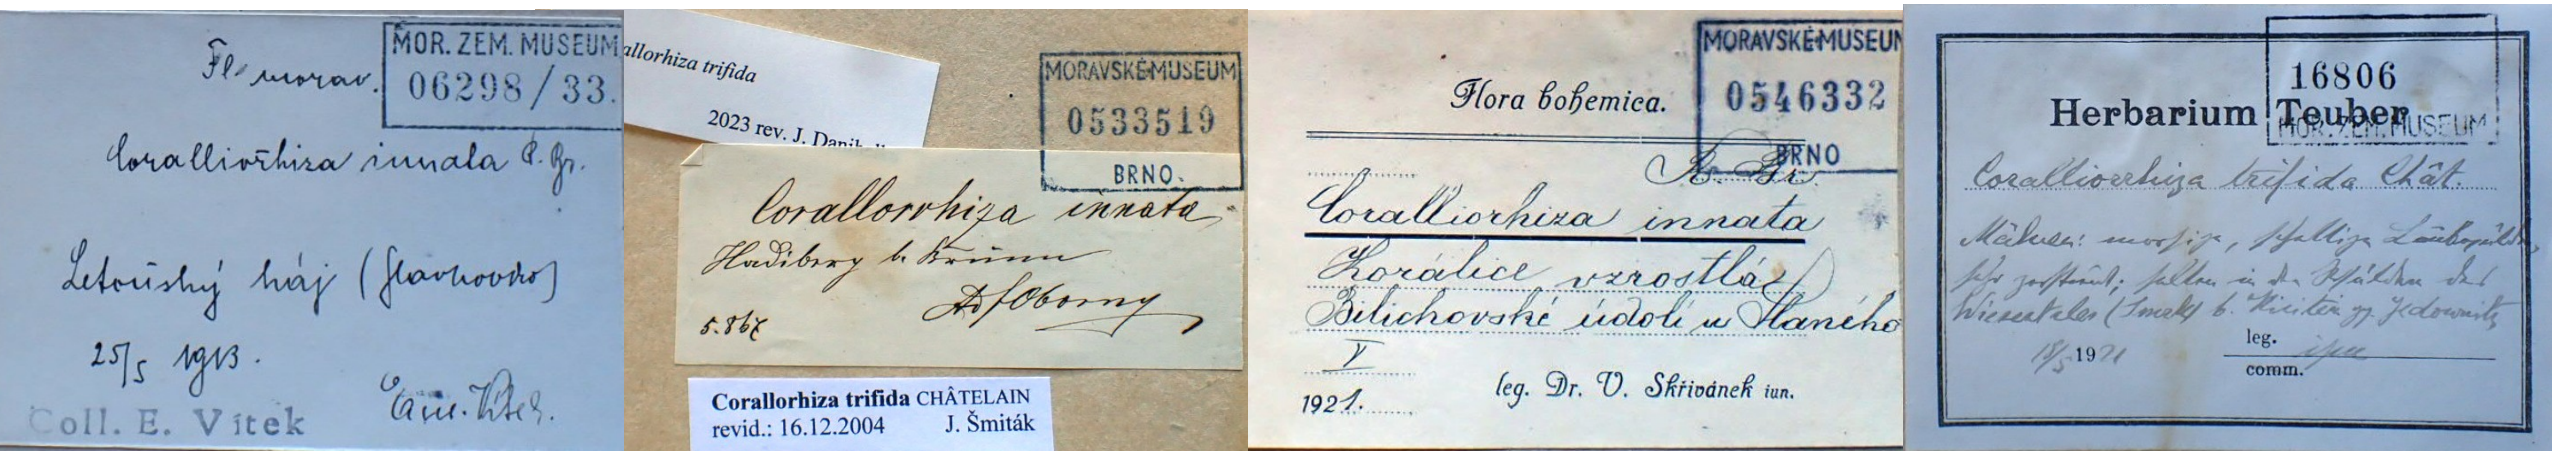 MOR. ZEM. MUSEUM
06298/33.
Fl. morav.
Coralliorhiza innata R. Br.
Letoúský háj
25/5 1913.
Em. Vítek.
Coll. E. Vítek
allorhiza trifida
2023 rev. J. Danih
MORAVSKÉ MUSEUM
0533519
BRNO
Corallorrhiza innata
Hadiberg b. Brünn
Ad Oborny
5.867
Corallorhiza trifida CHÂTELAIN
revid.: 16.12.2004 J. Šmiták
MORAVSKÉ MUSEUM
0546332
BRNO
Flora bohemica.
R. Br.
Coralliorhiza innata
Korálice vzrostlá
Bilichovské údolí u Slaného
V
1921.
leg. Dr. V. Skřivánek iun.
16806
MOR. ZEM. MUSEUM
Herbarium Teuber
Coralliorrhiza trifida Chât.
Mähren: moosige, schattige
sehr zerstreut; selten in den
b. Kiritein gg. Jedownitz
18/5 1921
leg. ipse
comm.